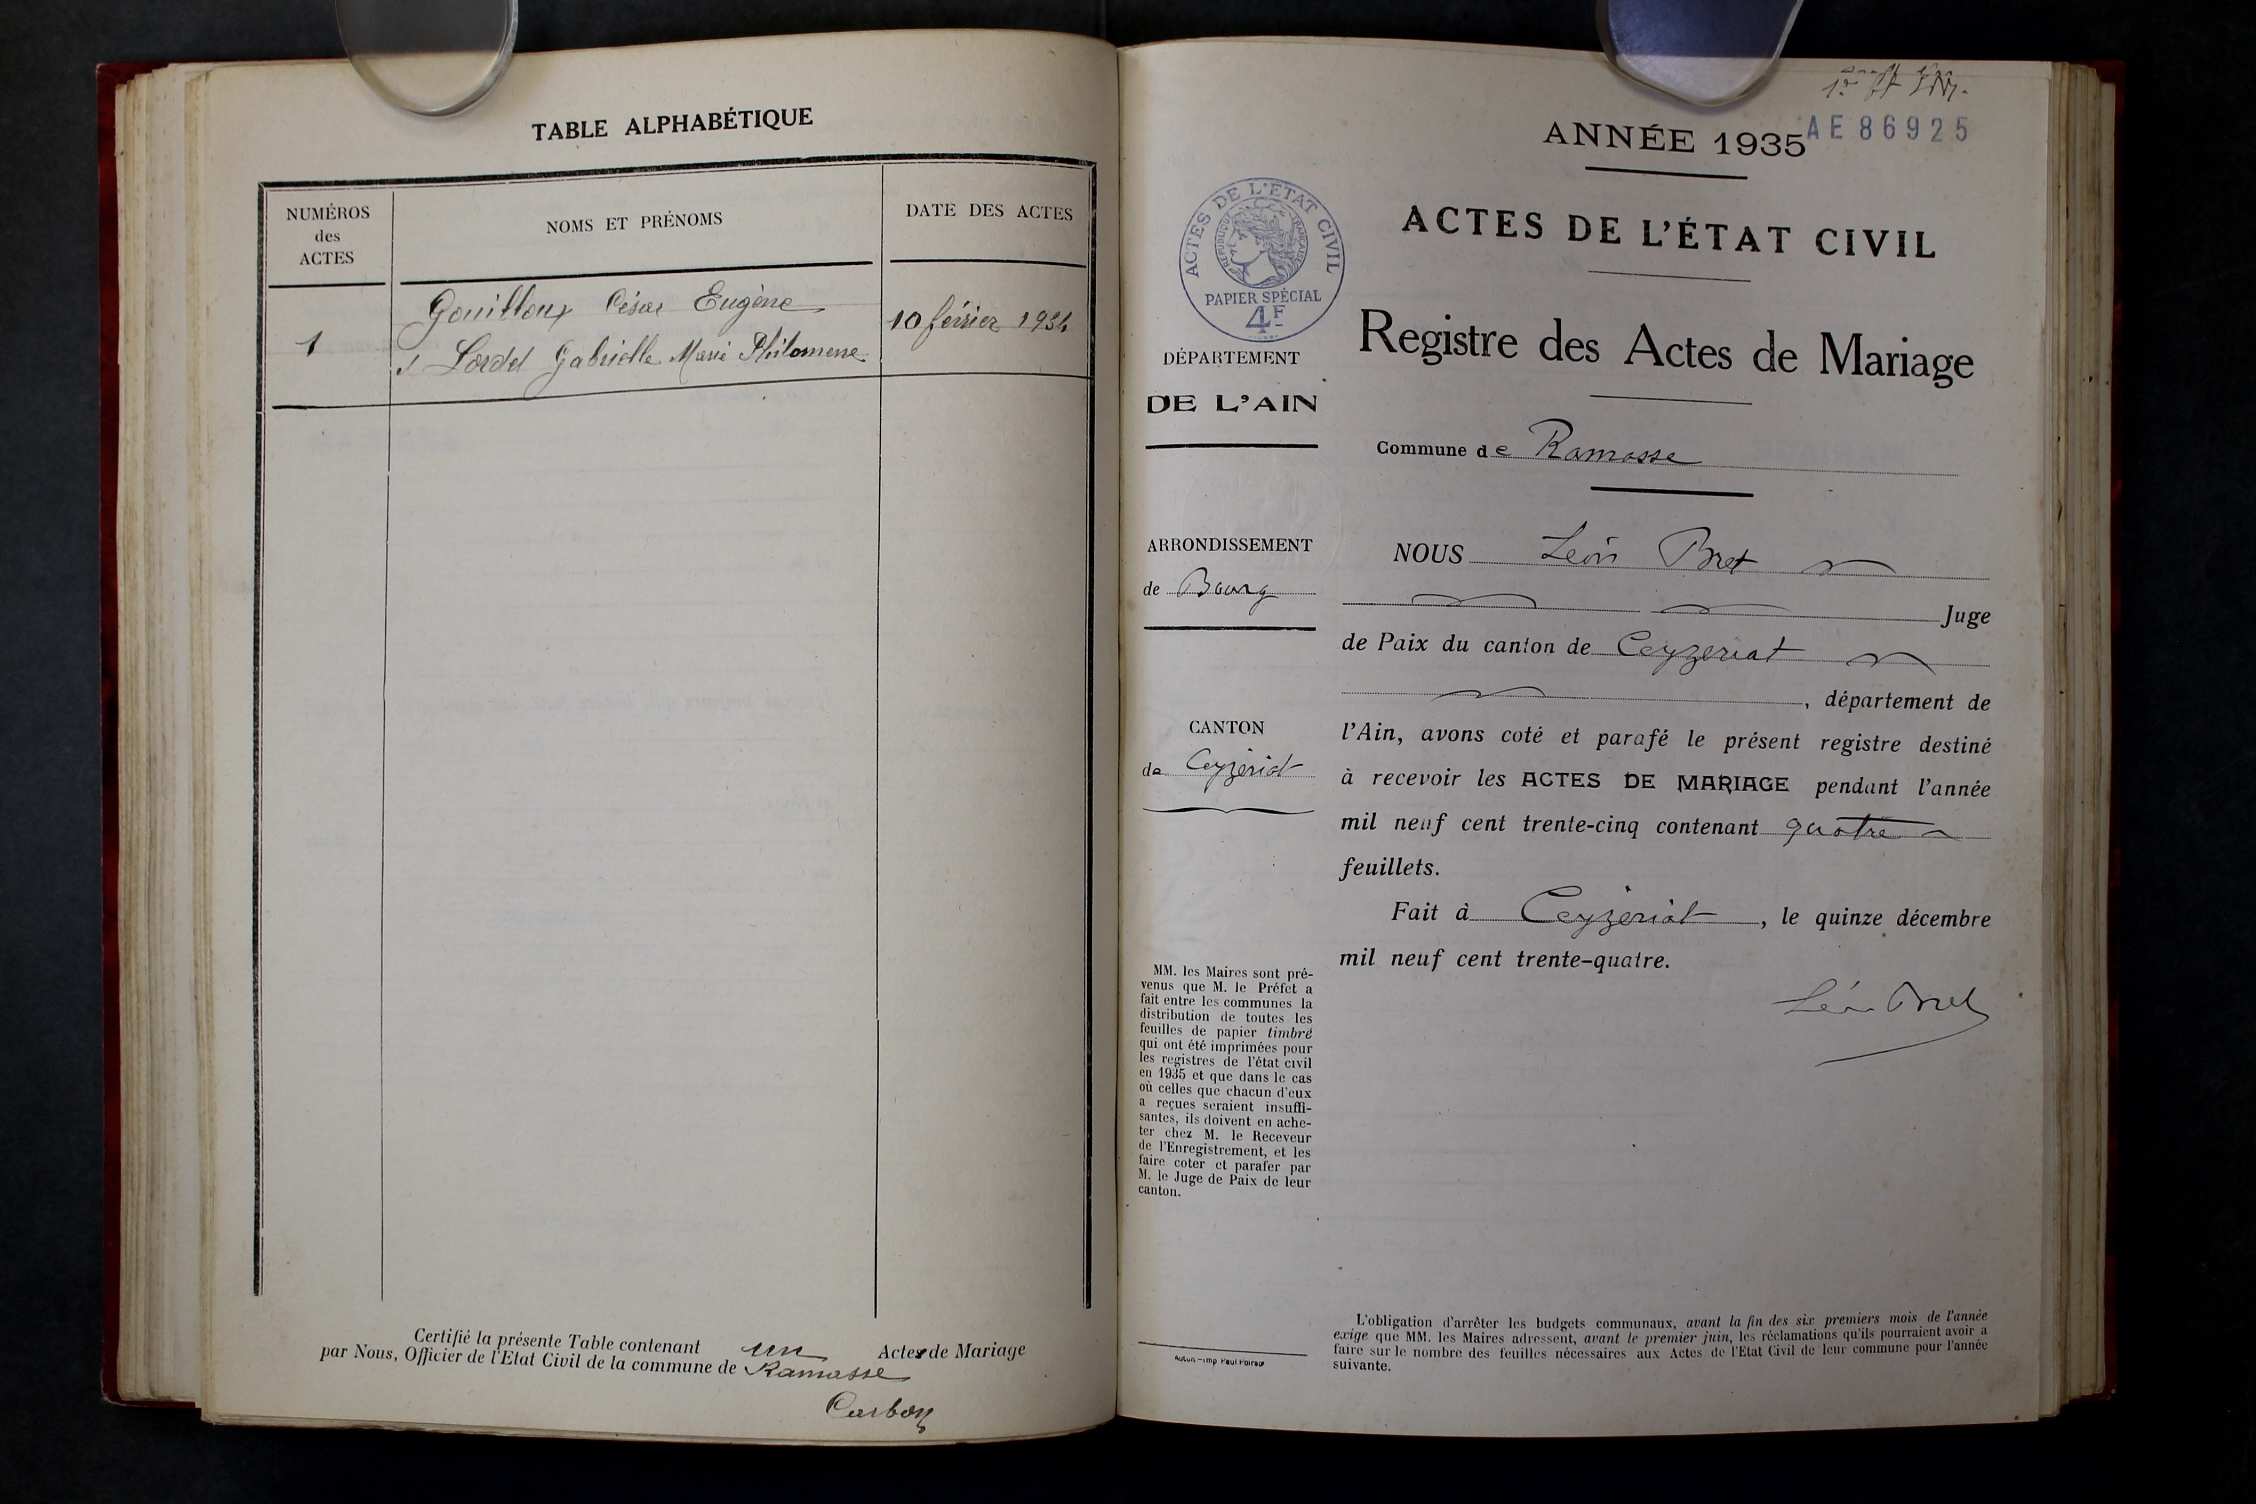 TABLE ALPHABÉTIQUE
NUMÉROS
des
ACTES
NOMS ET PRÉNOMS
DATE DES ACTES
1
Gouilloux César Eugène
Lordel Gabrielle Marie Philomene
10 février 1934
Certifié la présente Table contenant un Actes de Mariage
par Nous, Officier de l'Etat Civil de la commune de Ramasse
Carbon
ANNÉE 1935
AE86925
ACTES DE L'ÉTAT CIVIL
RÉPUBLIQUE FRANÇAISE
PAPIER SPÉCIAL
4F
DÉPARTEMENT
DE L'AIN
ARRONDISSEMENT
de Bourg
CANTON
de Ceyzériat
MM. les Maires sont pré-
venus que M. le Préfet a
fait entre les communes la
distribution de toutes les
feuilles de papier timbré
qui ont été imprimées pour
les registres de l'état civil
en 1935 et que dans le cas
où celles que chacun d'eux
a reçues seraient insuffi-
santes, ils doivent en ache-
ter chez M. le Receveur
de l'Enregistrement, et les
faire coter et parafer par
M. le Juge de Paix de leur
canton.
Autun - Imp Paul Poirson
ACTES DE L'ÉTAT CIVIL
Registre des Actes de Mariage
Commune de Ramasse
NOUS Léon Bret
Juge
de Paix du canton de Ceyzeriat
, département de
l'Ain, avons coté et parafé le présent registre destiné
à recevoir les ACTES DE MARIAGE pendant l'année
mil neuf cent trente-cinq contenant quatre
feuillets.
Fait à Ceyzeriat, le quinze décembre
mil neuf cent trente-quatre.
Léon Bret
L'obligation d'arrêter les budgets communaux, avant la fin des six premiers mois de l'année
exige que MM. les Maires adressent, avant le premier juin, les réclamations qu'ils pourraient avoir à
faire sur le nombre des feuilles nécessaires aux Actes de l'Etat Civil de leur commune pour l'année
suivante.